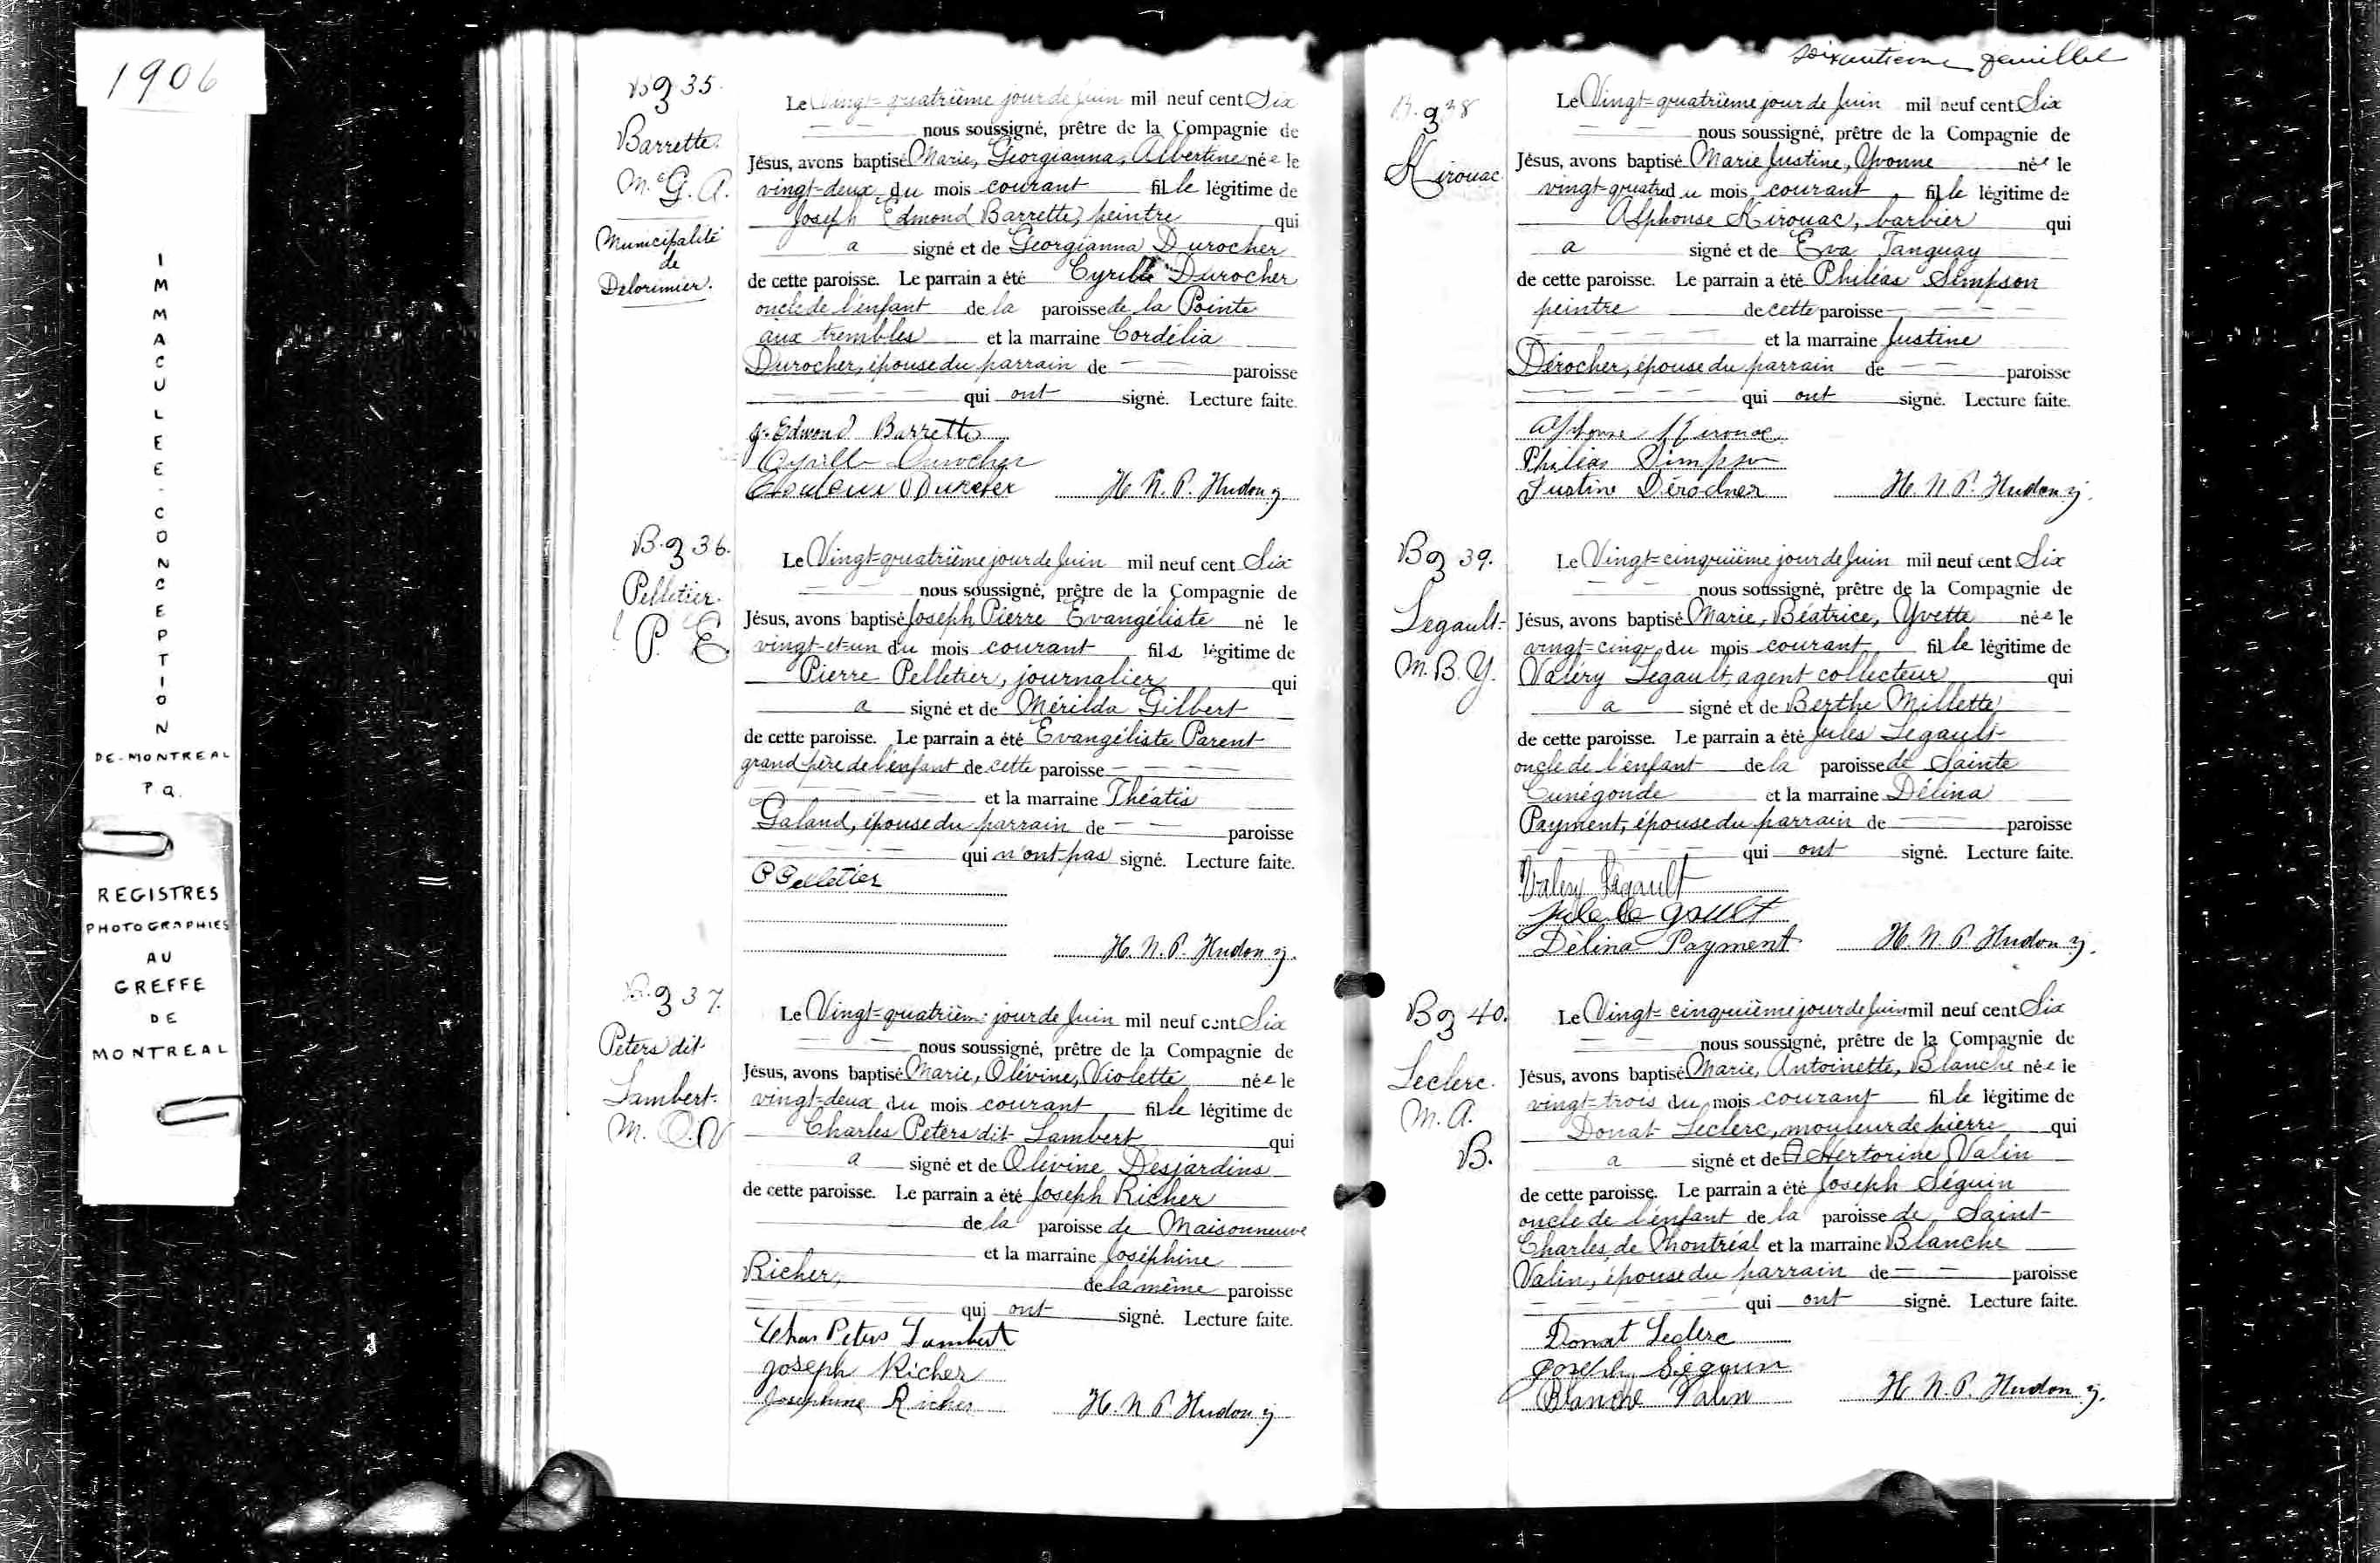 1906
IMMACULEE-CONCEPTION
DE-MONTREAL
P.Q.
REGISTRES
PHOTOGRAPHIES
AU
GREFFE
DE
MONTREAL
B 935.
Barrette.
M. G. A.
Municipalité
de
Delorimier.
Le Vingt-quatrième jour de Juin mil neuf cent Six
nous soussigné, prêtre de la Compagnie de
Jésus, avons baptisé Marie, Géorgianna, Albertine née le
vingt-deux du mois courant fille légitime de
Joseph Edmond Barrette, peintre qui
a signé et de Georgianna Durocher
de cette paroisse. Le parrain a été Cyrille Durocher
oncle de l'enfant de la paroisse de la Pointe
aux trembles et la marraine Cordélia
Durocher, épouse du parrain de paroisse
qui ont signé. Lecture faite.
J. Edmond Barrette
Cyrille Durocher
H. N. P. Hudon j
B. 936.
Pelletier.
P. E
Le Vingt-quatrième jour de Juin mil neuf cent Six
nous soussigné, prêtre de la Compagnie de
Jésus, avons baptisé Joseph, Pierre Evangéliste né le
vingt-et-un du mois courant fils légitime de
Pierre Pelletier, journalier qui
a signé et de Mérilda Gilbert
de cette paroisse. Le parrain a été Evangéliste Parent
grand père de l'enfant de cette paroisse
et la marraine Théatis
Galand, épouse du parrain de paroisse
qui n'ont pas signé. Lecture faite.
P Pelletier
H. N. P. Hudon j.
B. 937.
Peters dit
Lambert.
M. O. V
Le Vingt-quatrième jour de Juin mil neuf cent Six
nous soussigné, prêtre de la Compagnie de
Jésus, avons baptisé Marie, Olévine, Violette née le
vingt-deux du mois courant fille légitime de
Charles Peters dit Lambert qui
a signé et de Olévine Desjardins
de cette paroisse. Le parrain a été Joseph Richer
de la paroisse de Maisonneuve
et la marraine Joséphine
Richer, de la même paroisse
qui ont signé. Lecture faite.
Chas Peters Lambert
Joseph Richer
Josephine Richer
H. N. P. Hudon j
soixantieme feuillet
B. 938
Kirouac
Le Vingt-quatrième jour de Juin mil neuf cent Six
nous soussigné, prêtre de la Compagnie de
Jésus, avons baptisé Marie Justine, Yvonne née le
vingt-quatre du mois courant, fille légitime de
Alphonse Kirouac, barbier qui
a signé et de Eva Tanguay
de cette paroisse. Le parrain a été Philéas Simpson
peintre de cette paroisse
et la marraine Justine
Dérocher, épouse du parrain de paroisse
qui ont signé. Lecture faite.
Alphonse Kirouac
Philéas Simpson
Justine Dérocher
H. N. P. Hudon j.
B 939.
Legault.
M. B. Y.
Le Vingt-cinquième jour de Juin mil neuf cent Six
nous soussigné, prêtre de la Compagnie de
Jésus, avons baptisé Marie, Béatrice, Yvette née le
vingt-cinq du mois courant fille légitime de
Valéry Legault, agent collecteur qui
a signé et de Berthe Millette
de cette paroisse. Le parrain a été Jules Legault
oncle de l'enfant de la paroisse de Sainte
Cunégonde et la marraine Délina
Payment, épouse du parrain de paroisse
qui ont signé. Lecture faite.
Valery Légault
Jule le gault
Délina Payment
H. N. P. Hudon j.
B 940.
Leclerc.
M. A.
B.
Le Vingt-cinquième jour de Juin mil neuf cent Six
nous soussigné, prêtre de la Compagnie de
Jésus, avons baptisé Marie, Antoinette, Blanche née le
vingt-trois du mois courant fille légitime de
Donat Leclerc, mouleur de pierre qui
a signé et de Valin
de cette paroisse. Le parrain a été Joseph Séguin
oncle de l'enfant de la paroisse de Saint
Charles, de Montréal et la marraine Blanche
Valin, épouse du parrain de paroisse
qui ont signé. Lecture faite.
Donat Leclerc
Joseph Séguin
Blanche Valin
H. N. P. Hudon j.